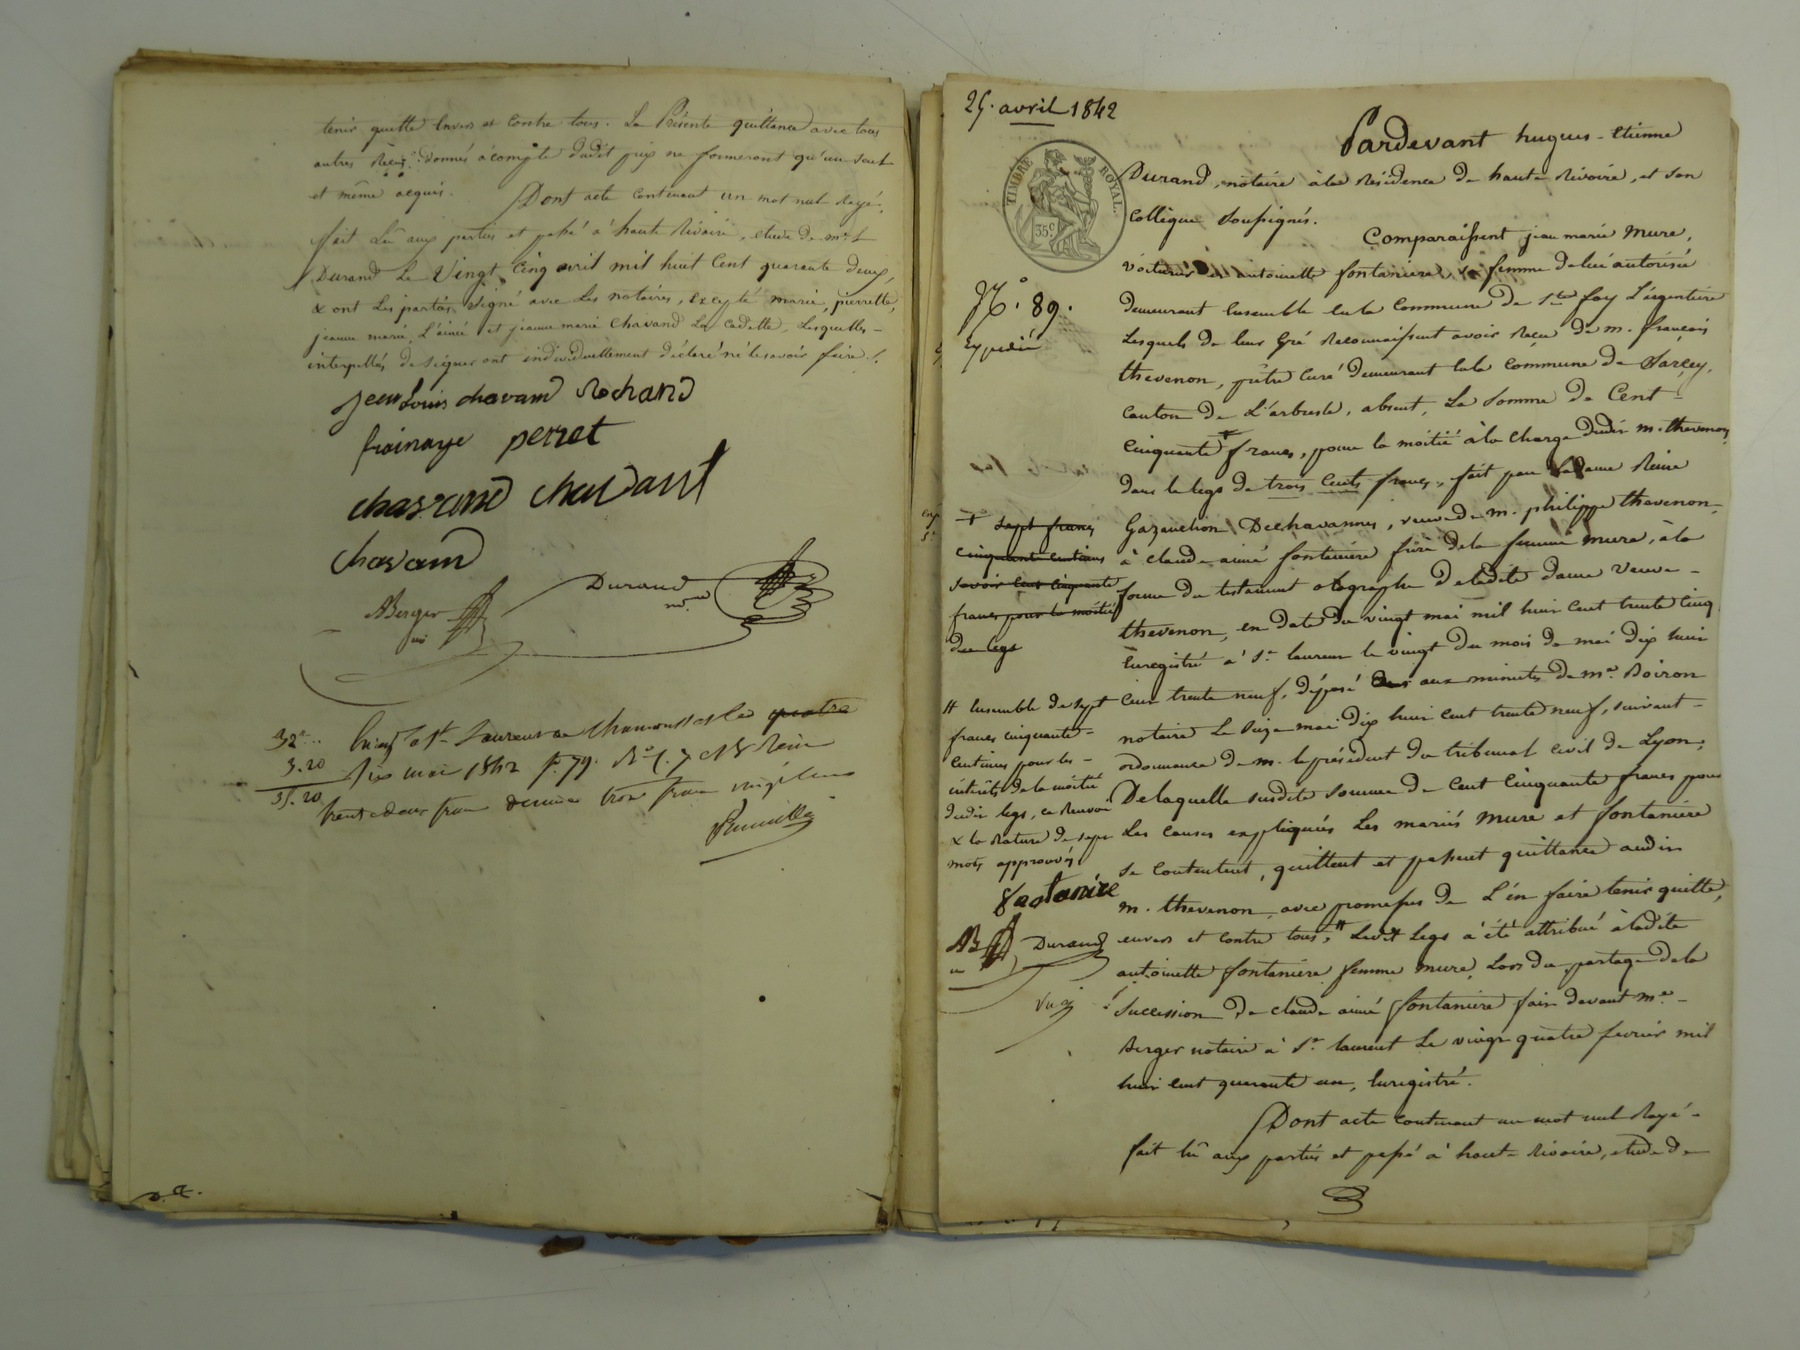 tenir quitte Envers et Contre tous. La Présente quittance avec tous
autres Reçus donnés àcompte dudit prix ne formeront qu'un seul
et même acquis. Dont acte contenant un mot nul Rayé.
fait Lû aux parties et passé à haute Rivoire, etude de me
Durand Le Vingt cinq avril mil huit Cent quarante deux,
& ont Les parties signé avec Les notaires, excepté marie, pierrette,
jeanne marie, L'ainée et jeanne marie Chavand La Cadette, Lesquelles -
interpellés de signer ont individuellement déclaré ne Le savoir faire /.
Jean Louis chavand Rochand
frainaye perret
chavand
chavand
ABerger Durand
nre
32f..
3.20
35.20
St Laurent de Chamousset le quatre
Dix mai 1842 fo. 79. Ro C. 7
trente deux francs décime trois francs vingt cent
v.a.
25. avril 1842
TIMBRE ROYAL.
35c.
No. 89.
Expédié
Pardevant hugues-Etienne
Durand, notaire à la Résidence de haute Rivoire, et son
Collègue soussignés.
Comparaissent jean marie Mure,
Voiturier & antoinette fontaniere sa femme de lui autorisée
demeurant Ensemble en la Commune de Ste foy L'argentiere
Lesquels de leur Gré Reconnaissent avoir Reçu de m. françois
thevenon, prêtre Curé demeurant en la Commune de Sarcey,
canton de L'arbresle, absent, La Somme de Cent -
Cinquante francs, pour la moitié à la charge dudit m. thevenon,
dans le legs de trois Cents francs, fait par Madame Reine
Gazanchon Dechavannes, veuve de m. philippe thevenon,
à claude aimé fontaniere frère de la femme Mure, à la
forme du testament olographe de ladite dame Veuve -
thevenon, en date du vingt mai mil huit cent trente cinq
Enregistré à St. laurent le vingt du mois de mai dix huit
cent trente neuf, déposé aux minutes de me. Boiron
notaire Le Seize mai dix huit cent trente neuf, suivant -
ordonnance de m. le président du tribunal civil de Lyon;
De laquelle susdite somme de Cent Cinquante francs pour
Les Causes expliqués Les mariés Mure et fontaniere
se Contentent, quittent et passent quittance audit
m. thevenon, avec promesses de L'en faire tenir quitte,
envers et contre tous, # Ledit Legs à été attribué à ladite
antoinette fontaniere femme Mure, Lors du partage de la
Succession de claude aimé fontaniere fait devant me. -
Berger notaire à St. laurent Le vingt quatre fevrier mil
huit cent quarante un, Enregistré.
Dont acte Contenant un mot nul Rayé -
fait Lû aux parties et passé à haute Rivoire, etude de
+ sept francs
cinquante centimes
savoir cent cinquante
francs pour la moitié
du legs
# Ensemble de sept
francs cinquante -
Centimes pour les -
intérêts de la moitié
dudit legs, ce Renvoi
& la Rature de
mots approuvés
fontaniere
AB Durand